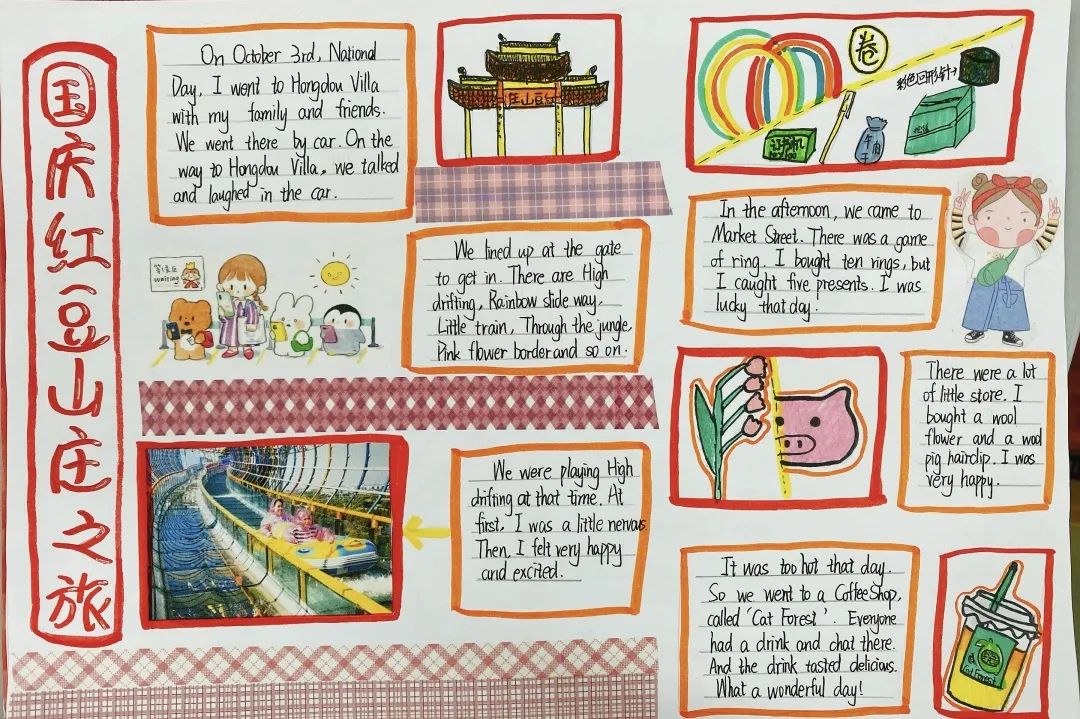 国庆红豆山庄之旅
On October 3rd, National
Day, I went to Hongdou Villa
with my family and friends.
We went there by car. On the
way to Hongdou Villa, we talked
and laughed in the car.
庄山豆红
卷
彩色回形针
订书机
牛肉
干
等候区
waiting
We lined up at the gate
to get in. There are High
drifting, Rainbow slide way,
Little train, Through the jungle,
Pink flower border and so on.
In the afternoon, we came to
Market Street. There was a game
of ring. I bought ten rings, but
I caught five presents. I was
lucky that day.
We were playing High
drifting at that time. At
first, I was a little nervous.
Then, I felt very happy
and excited.
There were a lot
of little store. I
bought a wool
flower and a wool
pig hairclip. I was
very happy.
It was too hot that day.
So we went to a Coffee Shop,
called 'Cat Forest'. Everyone
had a drink and chat there.
And the drink tasted delicious.
What a wonderful day!
Cat Forest